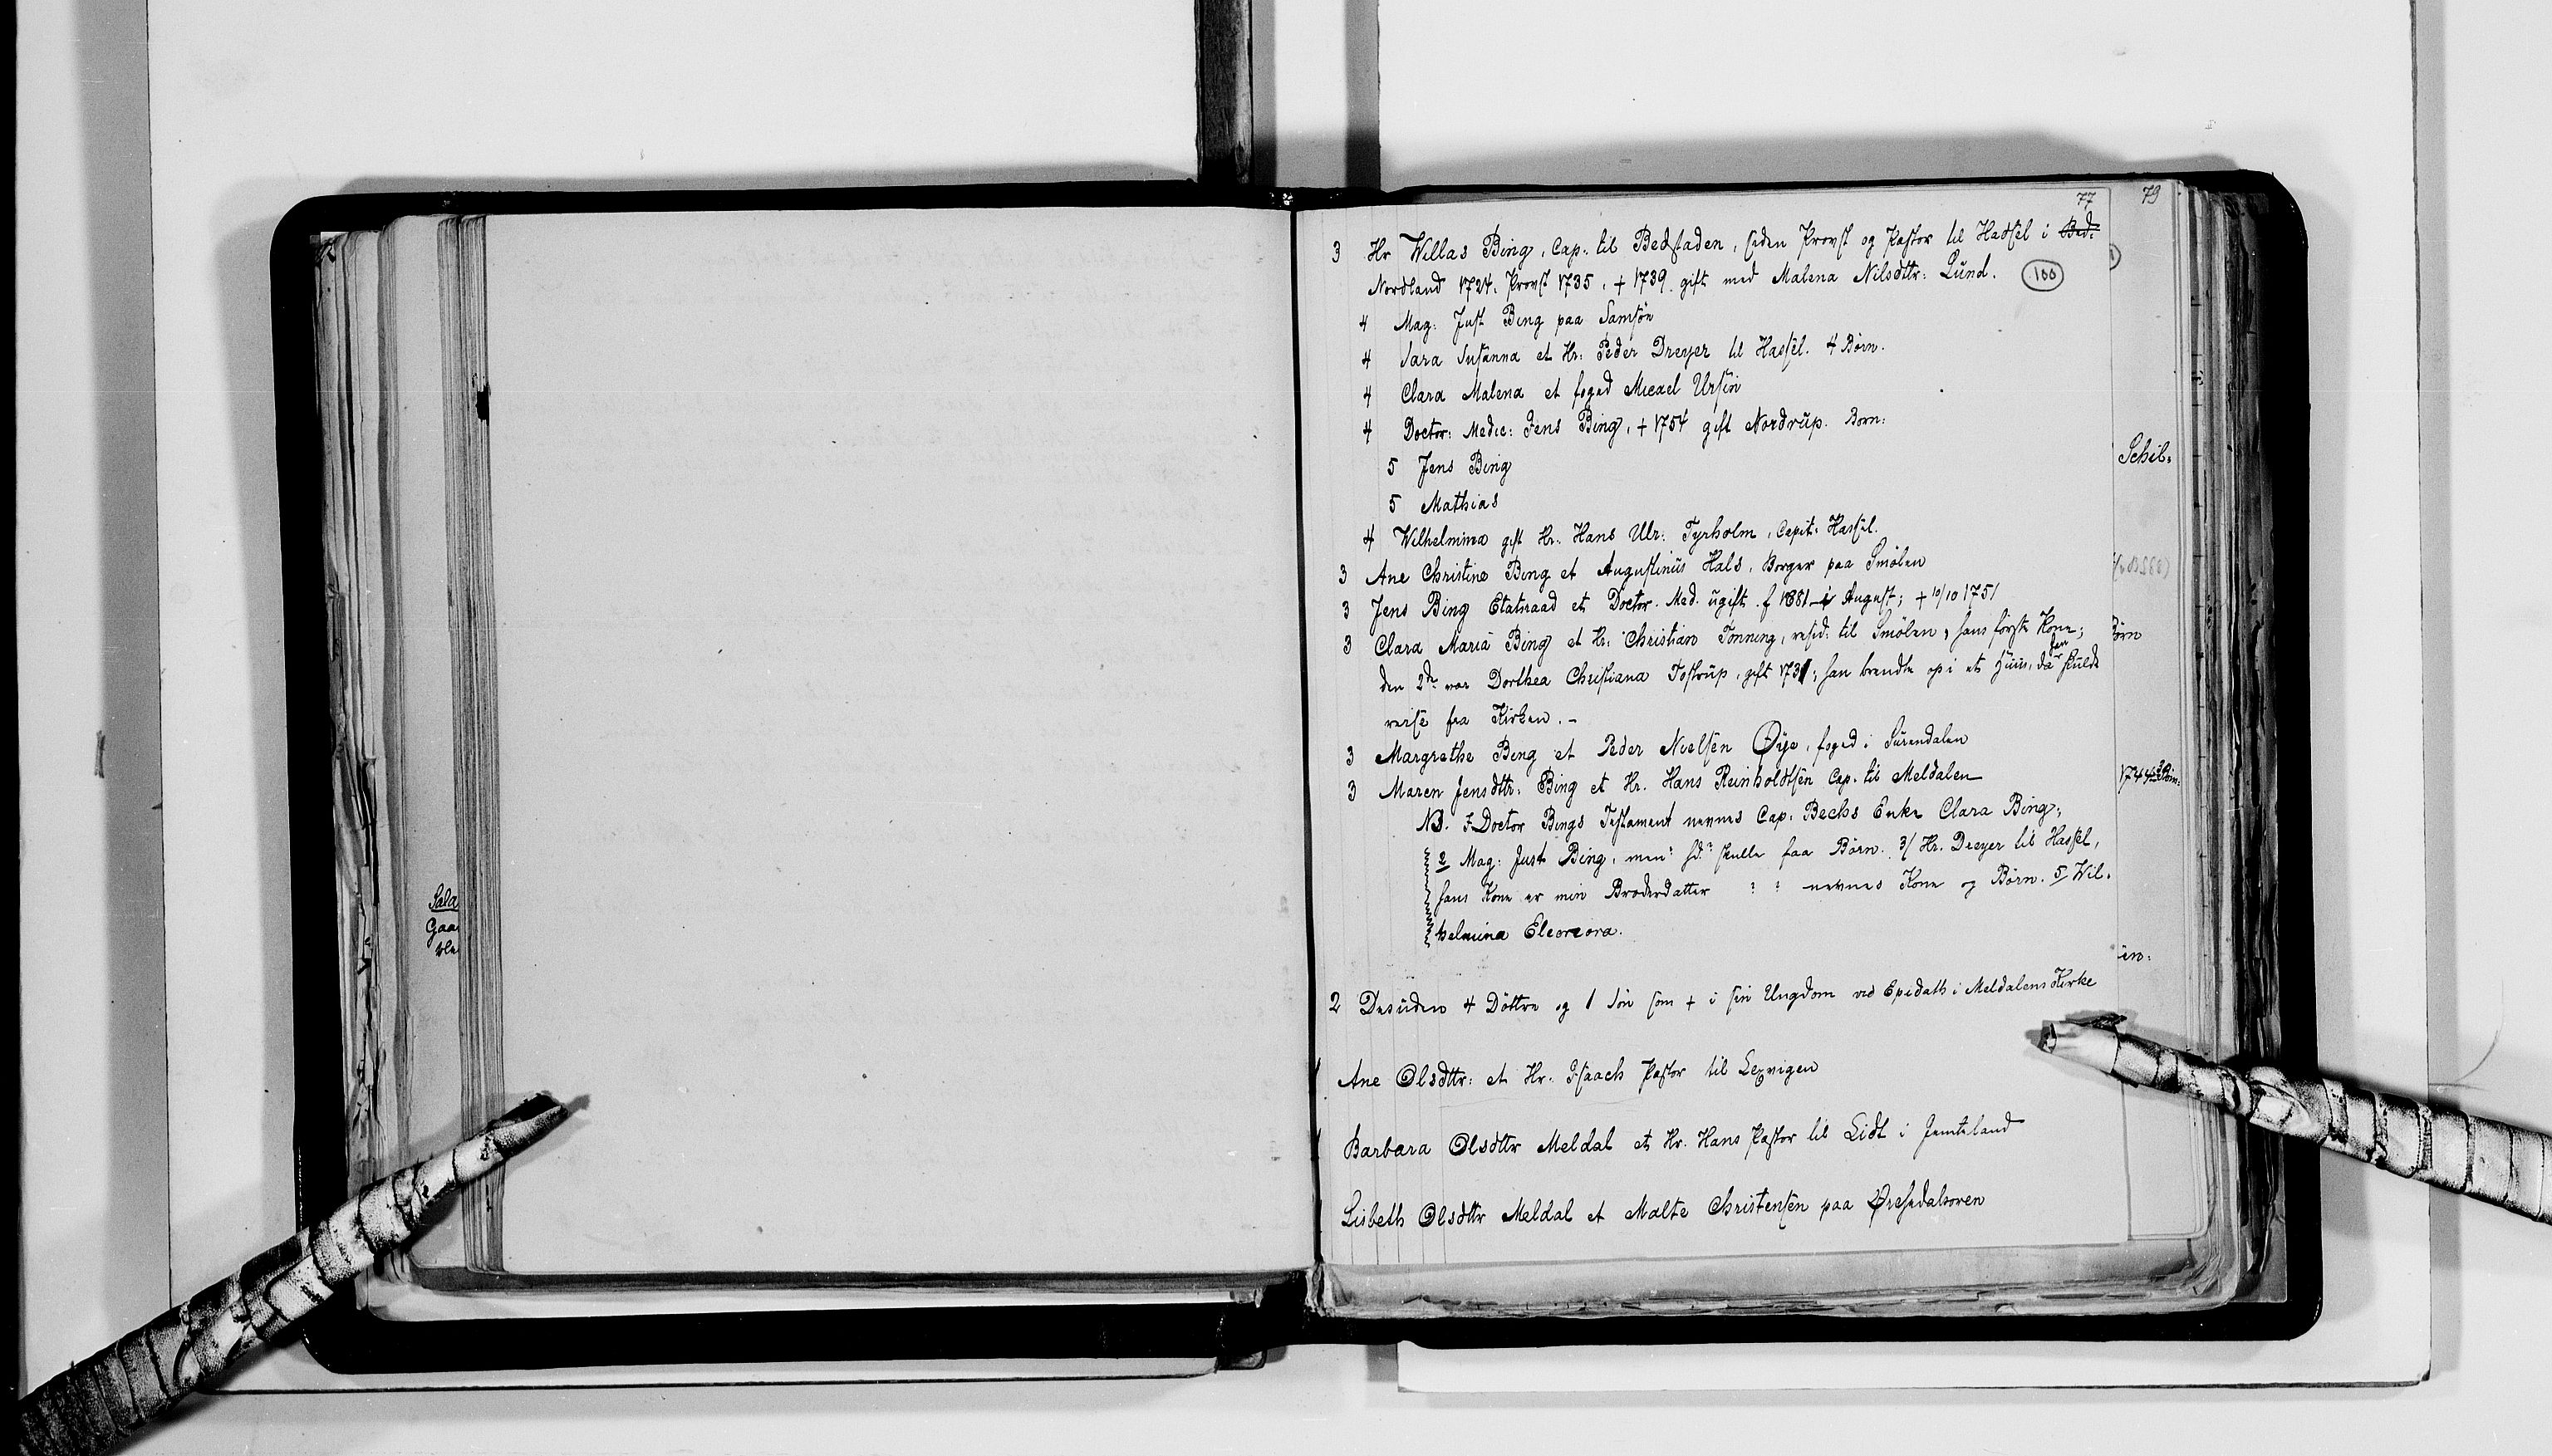 77
79
3 Hr Willas Bing, Cap. til Bedstaden, siden Provst og Pastor til Hadsel i Bed:
Nordland 1724. Provst 1735. + 1739. gift med Malena Nilsdttr: Lund.
100
4 Mag: Just Bing paa Samsøe
4 Sara Susanna et Hr: Peder Dreyer til Hassel. 4 Børn.
4 Clara Malena et foged Micael Ursin
4 Doctor: Medic: Jens Bing, + 1754 gift Nordrup. Born:
Schil:
5 Jens Bing
5 Mathias
4 Wilhelmina gift Hr: Hans Ulr: Tyrholm, Capit: Hassel.
3 Ane Christine Bing et Augustinus Hals, Borger paa Smölen
3 Jens Bing Etatsraad et Doctor. Med. ugift. f 1681 i August; + 10/10 1751
3 Clara Maria Bing et Hr: Christian Tönning, resid: til Smölen, hans förste Kone;
Börn
den 2de var Dorthea Christiana Tostrup, gift 1731; han brendte op i et Huus, da han skulde
reise fra Kirken. -
3 Margrethe Bing et Peder Nielsen Øye, foged i Surendalen
3 Maren Jensdttr: Bing et Hr. Hans Reinholdtsen Cap. til Meldalen
1744
NB. I Doctor Bings Testament nevnes Cap. Bechs Enke Clara Bing;
2 Mag: Just Bing, men skulle faa Börn. 3/ Hr. Dreyer til Hassel,
hans Kone er min Broderdatter : : nevnes Kone og Börn. 5/ Wil.
helmina Eleonora.
en:
Gaa
2 Desuden 4 Döttre og 1 Sön som + i sin Ungdom ved Epidath i Meldalens Kirke
1 Ane Olsdttr: et Hr. Isaach Pastor til Lexvigen
1 Barbara Olsdttr Meldal et Hr. Hans Pastor til Lidt i Jemteland
Lisbeth Olsdttr Meldal et Malte Christensen paa Ørchedalsoren